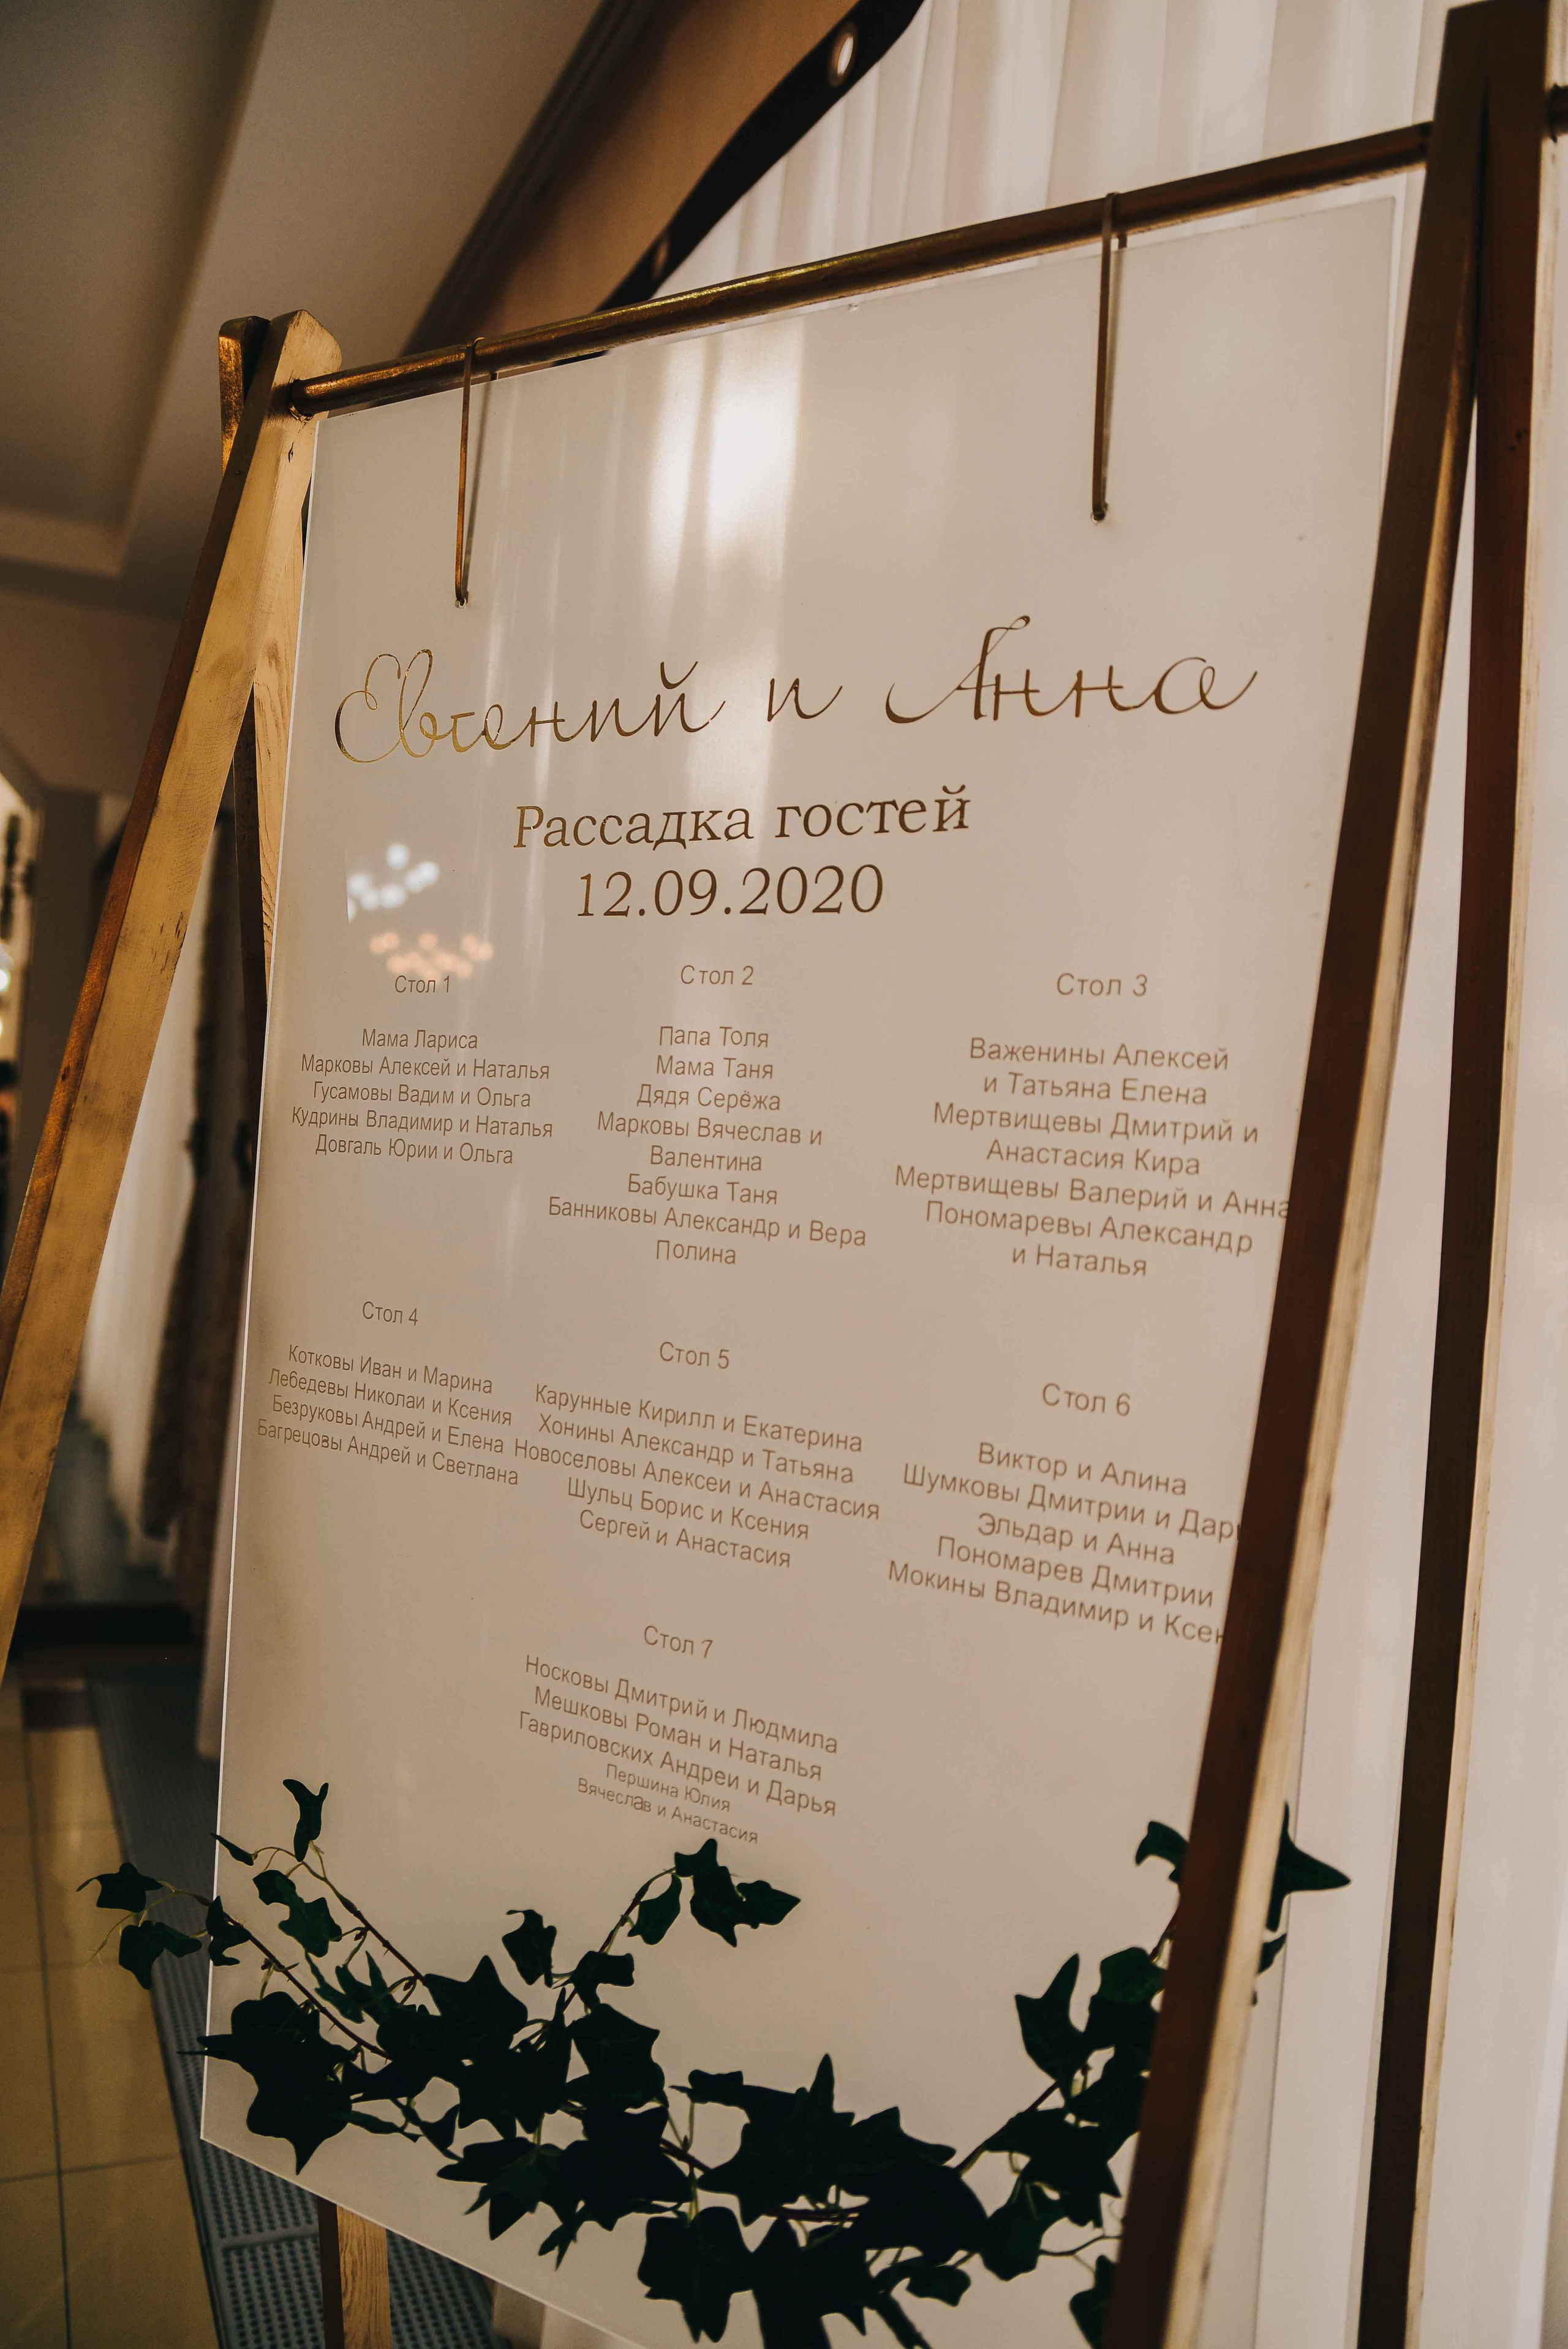 Евгений и Анна
Рассадка гостей
12.09.2020
Стол 1
Мама Лариса
Марковы Алексей и Наталья
Гусамовы Вадим и Ольга
Кудрины Владимир и Наталья
Довгаль Юрии и Ольга
Стол 2
Папа Толя
Мама Таня
Дядя Серёжа
Марковы Вячеслав и
Валентина
Бабушка Таня
Банниковы Александр и Вера
Полина
Стол 3
Важенины Алексей
и Татьяна Елена
Мертвищевы Дмитрий и
Анастасия Кира
Мертвищевы Валерий и Анна
Пономаревы Александр
и Наталья
Стол 4
Котковы Иван и Марина
Лебедевы Николаи и Ксения
Безруковы Андрей и Елена
Багрецовы Андрей и Светлана
Стол 5
Карунные Кирилл и Екатерина
Хонины Александр и Татьяна
Новоселовы Алексеи и Анастасия
Шульц Борис и Ксения
Сергей и Анастасия
Стол 6
Виктор и Алина
Шумковы Дмитрии и
Эльдар и Анна
Пономарев Дмитрии
Мокины Владимир и
Стол 7
Носковы Дмитрий и Людмила
Мешковы Роман и Наталья
Гавриловских Андреи и Дарья
Першина Юлия
Вячеслав и Анастасия